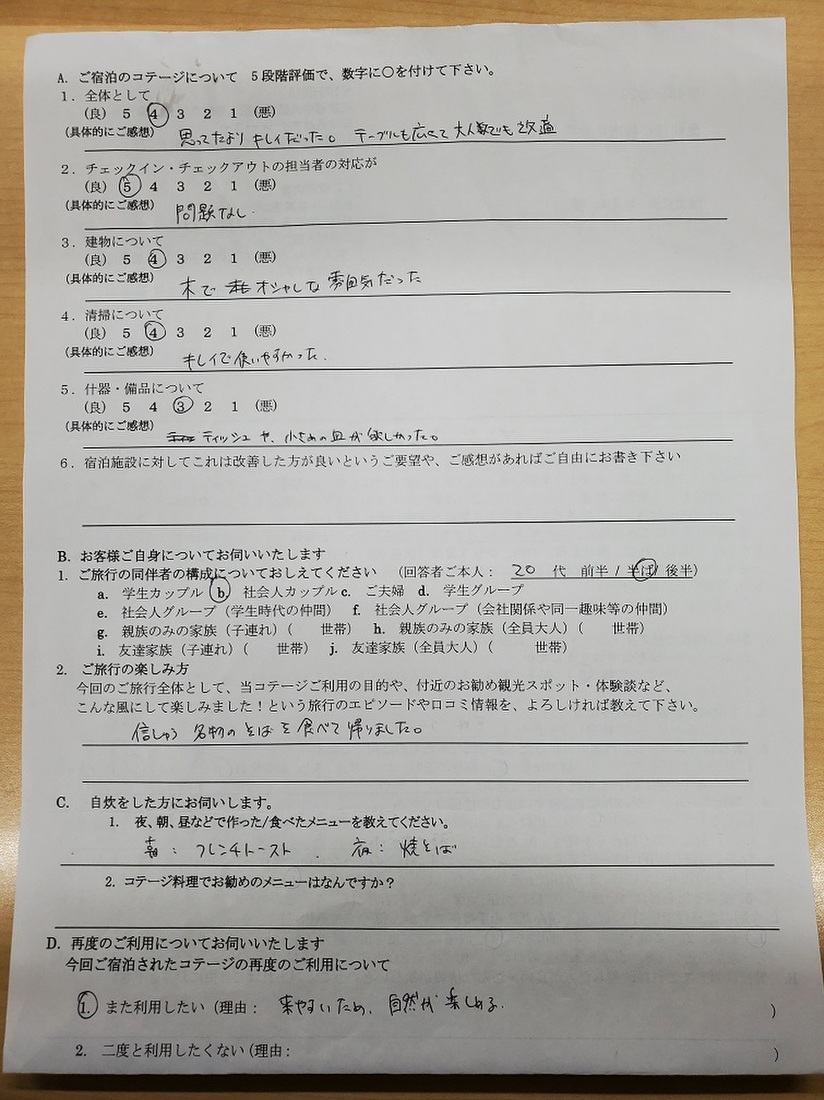 A. ご宿泊のコテージについて 5段階評価で、数字に〇を付けて下さい。
1．全体として
(良) 5 4 3 2 1 (悪)
(具体的にご感想) 思ってたよりキレイだった。テーブルも広くて大人数でも
2．チェックイン・チェックアウトの担当者の対応が
(良) 5 4 3 2 1 (悪)
(具体的にご感想) 問題なし.
3．建物について
(良) 5 4 3 2 1 (悪)
(具体的にご感想) 木で オシャレな雰囲気だった
4．清掃について
(良) 5 4 3 2 1 (悪)
(具体的にご感想) キレイで使いやすかった.
5．什器・備品について
(良) 5 4 3 2 1 (悪)
(具体的にご感想) ティッシュや、小さめの皿が欲しかった。
6．宿泊施設に対してこれは改善した方が良いというご要望や、ご感想があればご自由にお書き下さい
B. お客様ご自身についてお伺いいたします
1. ご旅行の同伴者の構成についておしえてください (回答者ご本人： 20 代 前半 / 半ば/ 後半)
a. 学生カップル b. 社会人カップル c. ご夫婦 d. 学生グループ
e. 社会人グループ（学生時代の仲間） f. 社会人グループ（会社関係や同一趣味等の仲間）
g. 親族のみの家族（子連れ）( 世帯) h. 親族のみの家族（全員大人）( 世帯)
i. 友達家族（子連れ）( 世帯) j. 友達家族（全員大人）( 世帯)
2. ご旅行の楽しみ方
今回のご旅行全体として、当コテージご利用の目的や、付近のお勧め観光スポット・体験談など、
こんな風にして楽しみました！という旅行のエピソードや口コミ情報を、よろしければ教えて下さい。
信しゅう名物のそばを食べて帰りました。
C. 自炊をした方にお伺いします。
1. 夜、朝、昼などで作った/食べたメニューを教えてください。
朝： フレンチトースト . 夜： 焼そば
2. コテージ料理でお勧めのメニューはなんですか？
D. 再度のご利用についてお伺いいたします
今回ご宿泊されたコテージの再度のご利用について
1. また利用したい (理由： 来やすいため、自然が楽しめる. )
2. 二度と利用したくない (理由： )